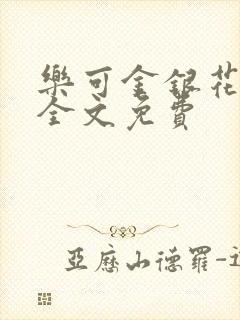 樂可金銀花
全文免費
亞歷山德羅-